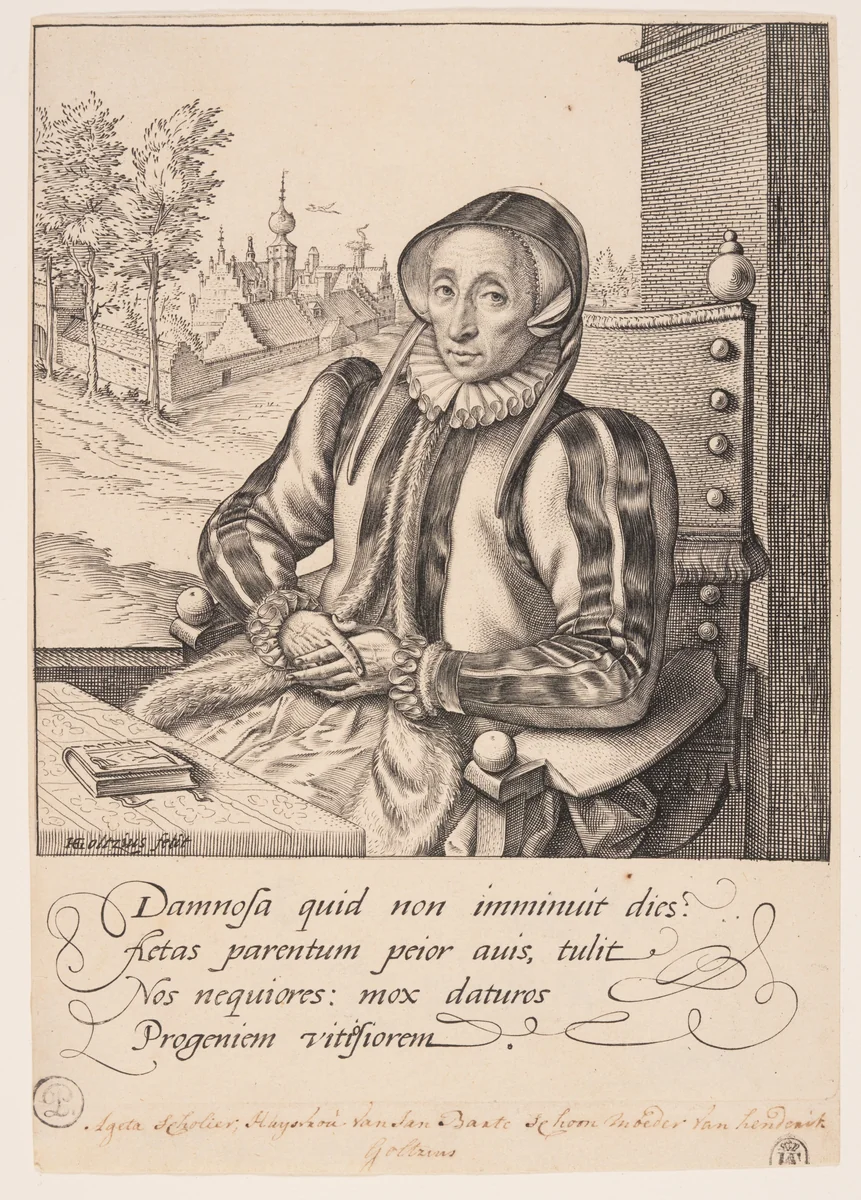 HGoltzius fecit
Damnoſa quid non imminuit dies?
Aetas parentum peior auis, tulit
Nos nequiores: mox daturos
Progeniem vitioſiorem.
Ageta Scholier, Huysvrou van Jan Baate Schoon moeder van hendrick
Goltzius